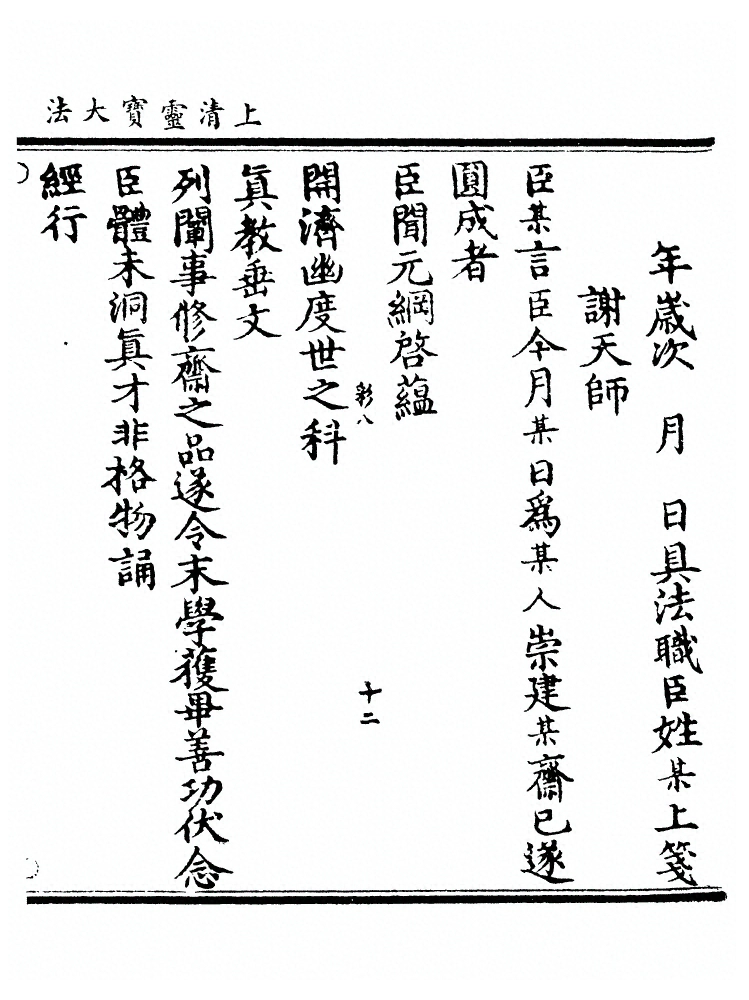 上清靈寶大法
年歲次　月　日具法職臣姓某上箋
謝天師
臣某言臣今月某日爲某人崇建某齋已遂
圓成者
臣聞元綱啓蘊
彩八
十二
開濟幽度世之科
眞教垂文
列闡事修齋之品遂令末學獲畢善功伏念
臣體未洞眞才非格物誦
經行